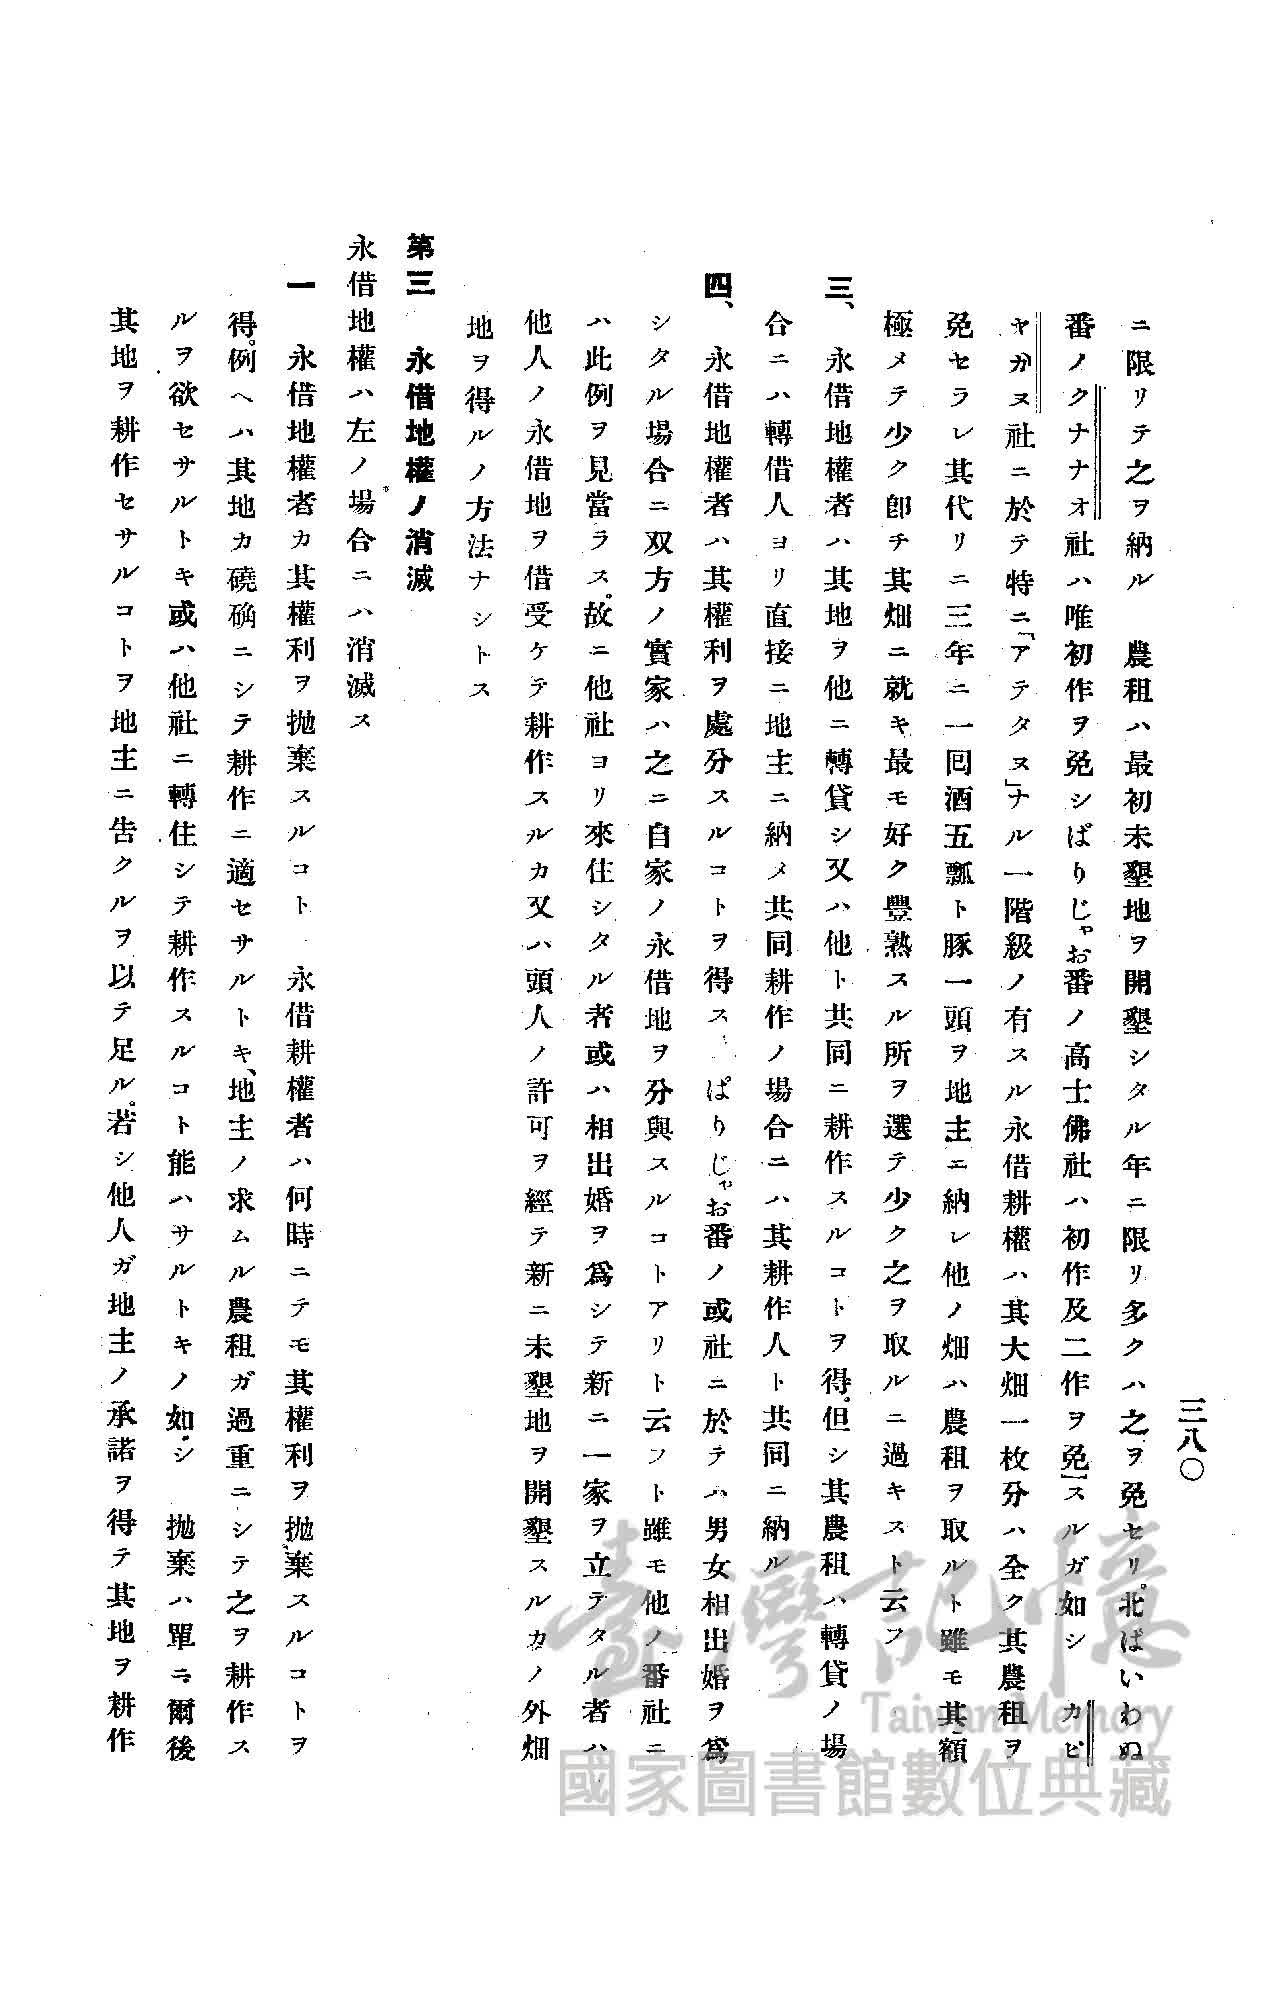 三八〇
ニ限リテ之ヲ納ル　農租ハ最初未墾地ヲ開墾シタル年ニ限リ多クハ之ヲ免セリ。北ぱいわぬ
番ノクナナオ社ハ唯初作ヲ免シぱりじゃお番ノ高士佛社ハ初作及二作ヲ免スルガ如シ　カピ
ヤガヌ社ニ於テ特ニ「アテタヌ」ナル一階級ノ有スル永借耕權ハ其大畑一枚分ハ全ク其農租ヲ
免セラレ其代リニ三年ニ一回酒五瓢ト豚一頭ヲ地主ニ納レ他ノ畑ハ農租ヲ取ルト雖モ其額
極メテ少ク卽チ其畑ニ就キ最モ好ク豐熟スル所ヲ選テ少ク之ヲ取ルニ過キスト云フ
三、永借地權者ハ其地ヲ他ニ轉貸シ又ハ他ト共同ニ耕作スルコトヲ得。但シ其農租ハ轉貸ノ場
合ニハ轉借人ヨリ直接ニ地主ニ納メ共同耕作ノ場合ニハ其耕作人ト共同ニ納ル
四、永借地權者ハ其權利ヲ處分スルコトヲ得ス　ぱりじゃお番ノ或社ニ於テハ男女相出婚ヲ爲
シタル場合ニ双方ノ實家ハ之ニ自家ノ永借地ヲ分與スルコトアリト云フト雖モ他ノ番社ニ
ハ此例ヲ見當ラス。故ニ他社ヨリ來住シタル者或ハ相出婚ヲ爲シテ新ニ一家ヲ立テタル者ハ
他人ノ永借地ヲ借受ケテ耕作スルカ又ハ頭人ノ許可ヲ經テ新ニ未墾地ヲ開墾スルカノ外畑
地ヲ得ルノ方法ナシトス
第三　永借地權ノ消滅
永借地權ハ左ノ場合ニハ消滅ス
一　永借地權者カ其權利ヲ抛棄スルコト　永借耕權者ハ何時ニテモ其權利ヲ抛棄スルコトヲ
得。例ヘハ其地カ磽确ニシテ耕作ニ適セサルトキ、地主ノ求ムル農租ガ過重ニシテ之ヲ耕作ス
ルヲ欲セサルトキ或ハ他社ニ轉住シテ耕作スルコト能ハサルトキノ如シ　抛棄ハ單ニ爾後
其地ヲ耕作セサルコトヲ地主ニ告クルヲ以テ足ル。若シ他人ガ地主ノ承諾ヲ得テ其地ヲ耕作
臺灣記憶
Taiwan Memory
國家圖書館數位典藏